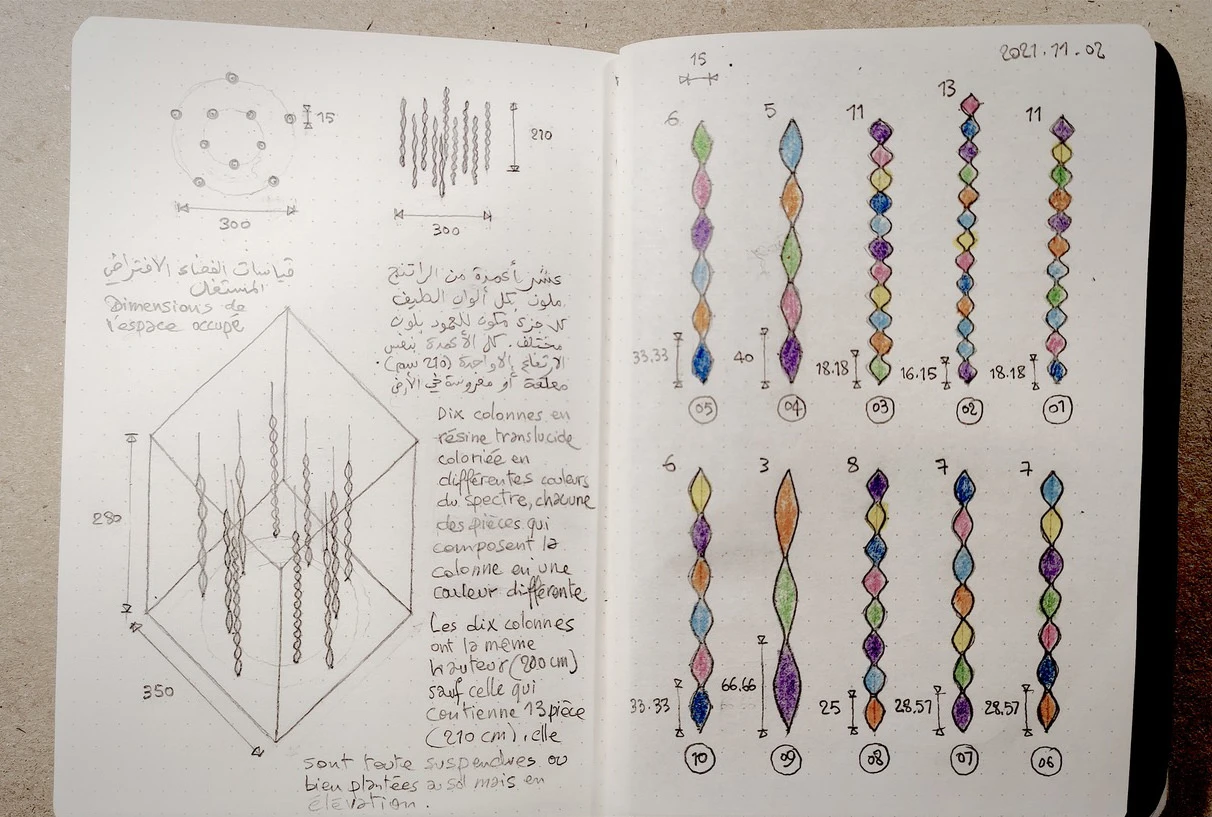 15
300
210
300
قياسات الفضاء الافتراضي
المستغل
Dimensions de
l'espace occupé
عشر أعمدة من الراتنج
ملون بكل ألوان الطيف
كل جزئ مكون للعمود بلون
مختلف. كل الأعمدة بنفس
الارتفاع إلا واحدة (210 سم)
معلقة أو مغروسة في الأرض
Dix colonnes en
résine translucide
coloriée en
différentes couleurs
du spectre, chacune
des pièces qui
composent la
colonne en une
couleur différente
Les dix colonnes
ont la même
hauteur (200 cm)
sauf celle qui
contienne 13 pièce
(210 cm), elle
sont toute suspendues ou
bien plantées au sol mais en
élévation.
280
350
2021.11.02
15
6
5
11
13
11
33.33
40
18.18
16.15
18.18
05
04
03
02
01
6
3
8
7
7
33.33
66.66
25
28.57
28.57
10
09
08
07
06